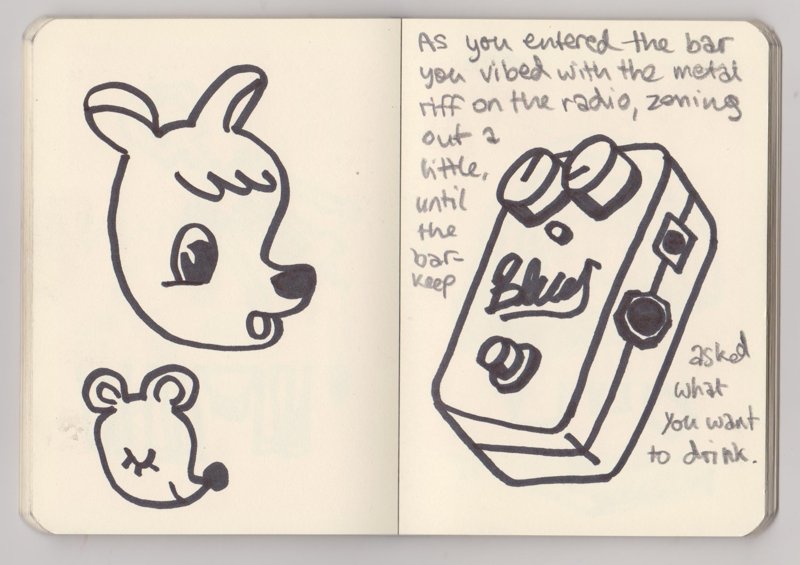 As you entered the bar
you vibed with the metal
riff on the radio, zoning
out a
little,
until
the
bar-
keep
Blues
asked
what
you want
to drink.